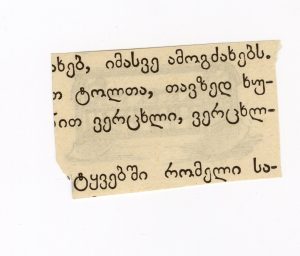 ახებ, იმასვე ამოგძახებს.
თ ტოლთა, თავზედ ხუ-
ნით ვერცხლი, ვერცხლ-
ტყვებში რომელი სა-